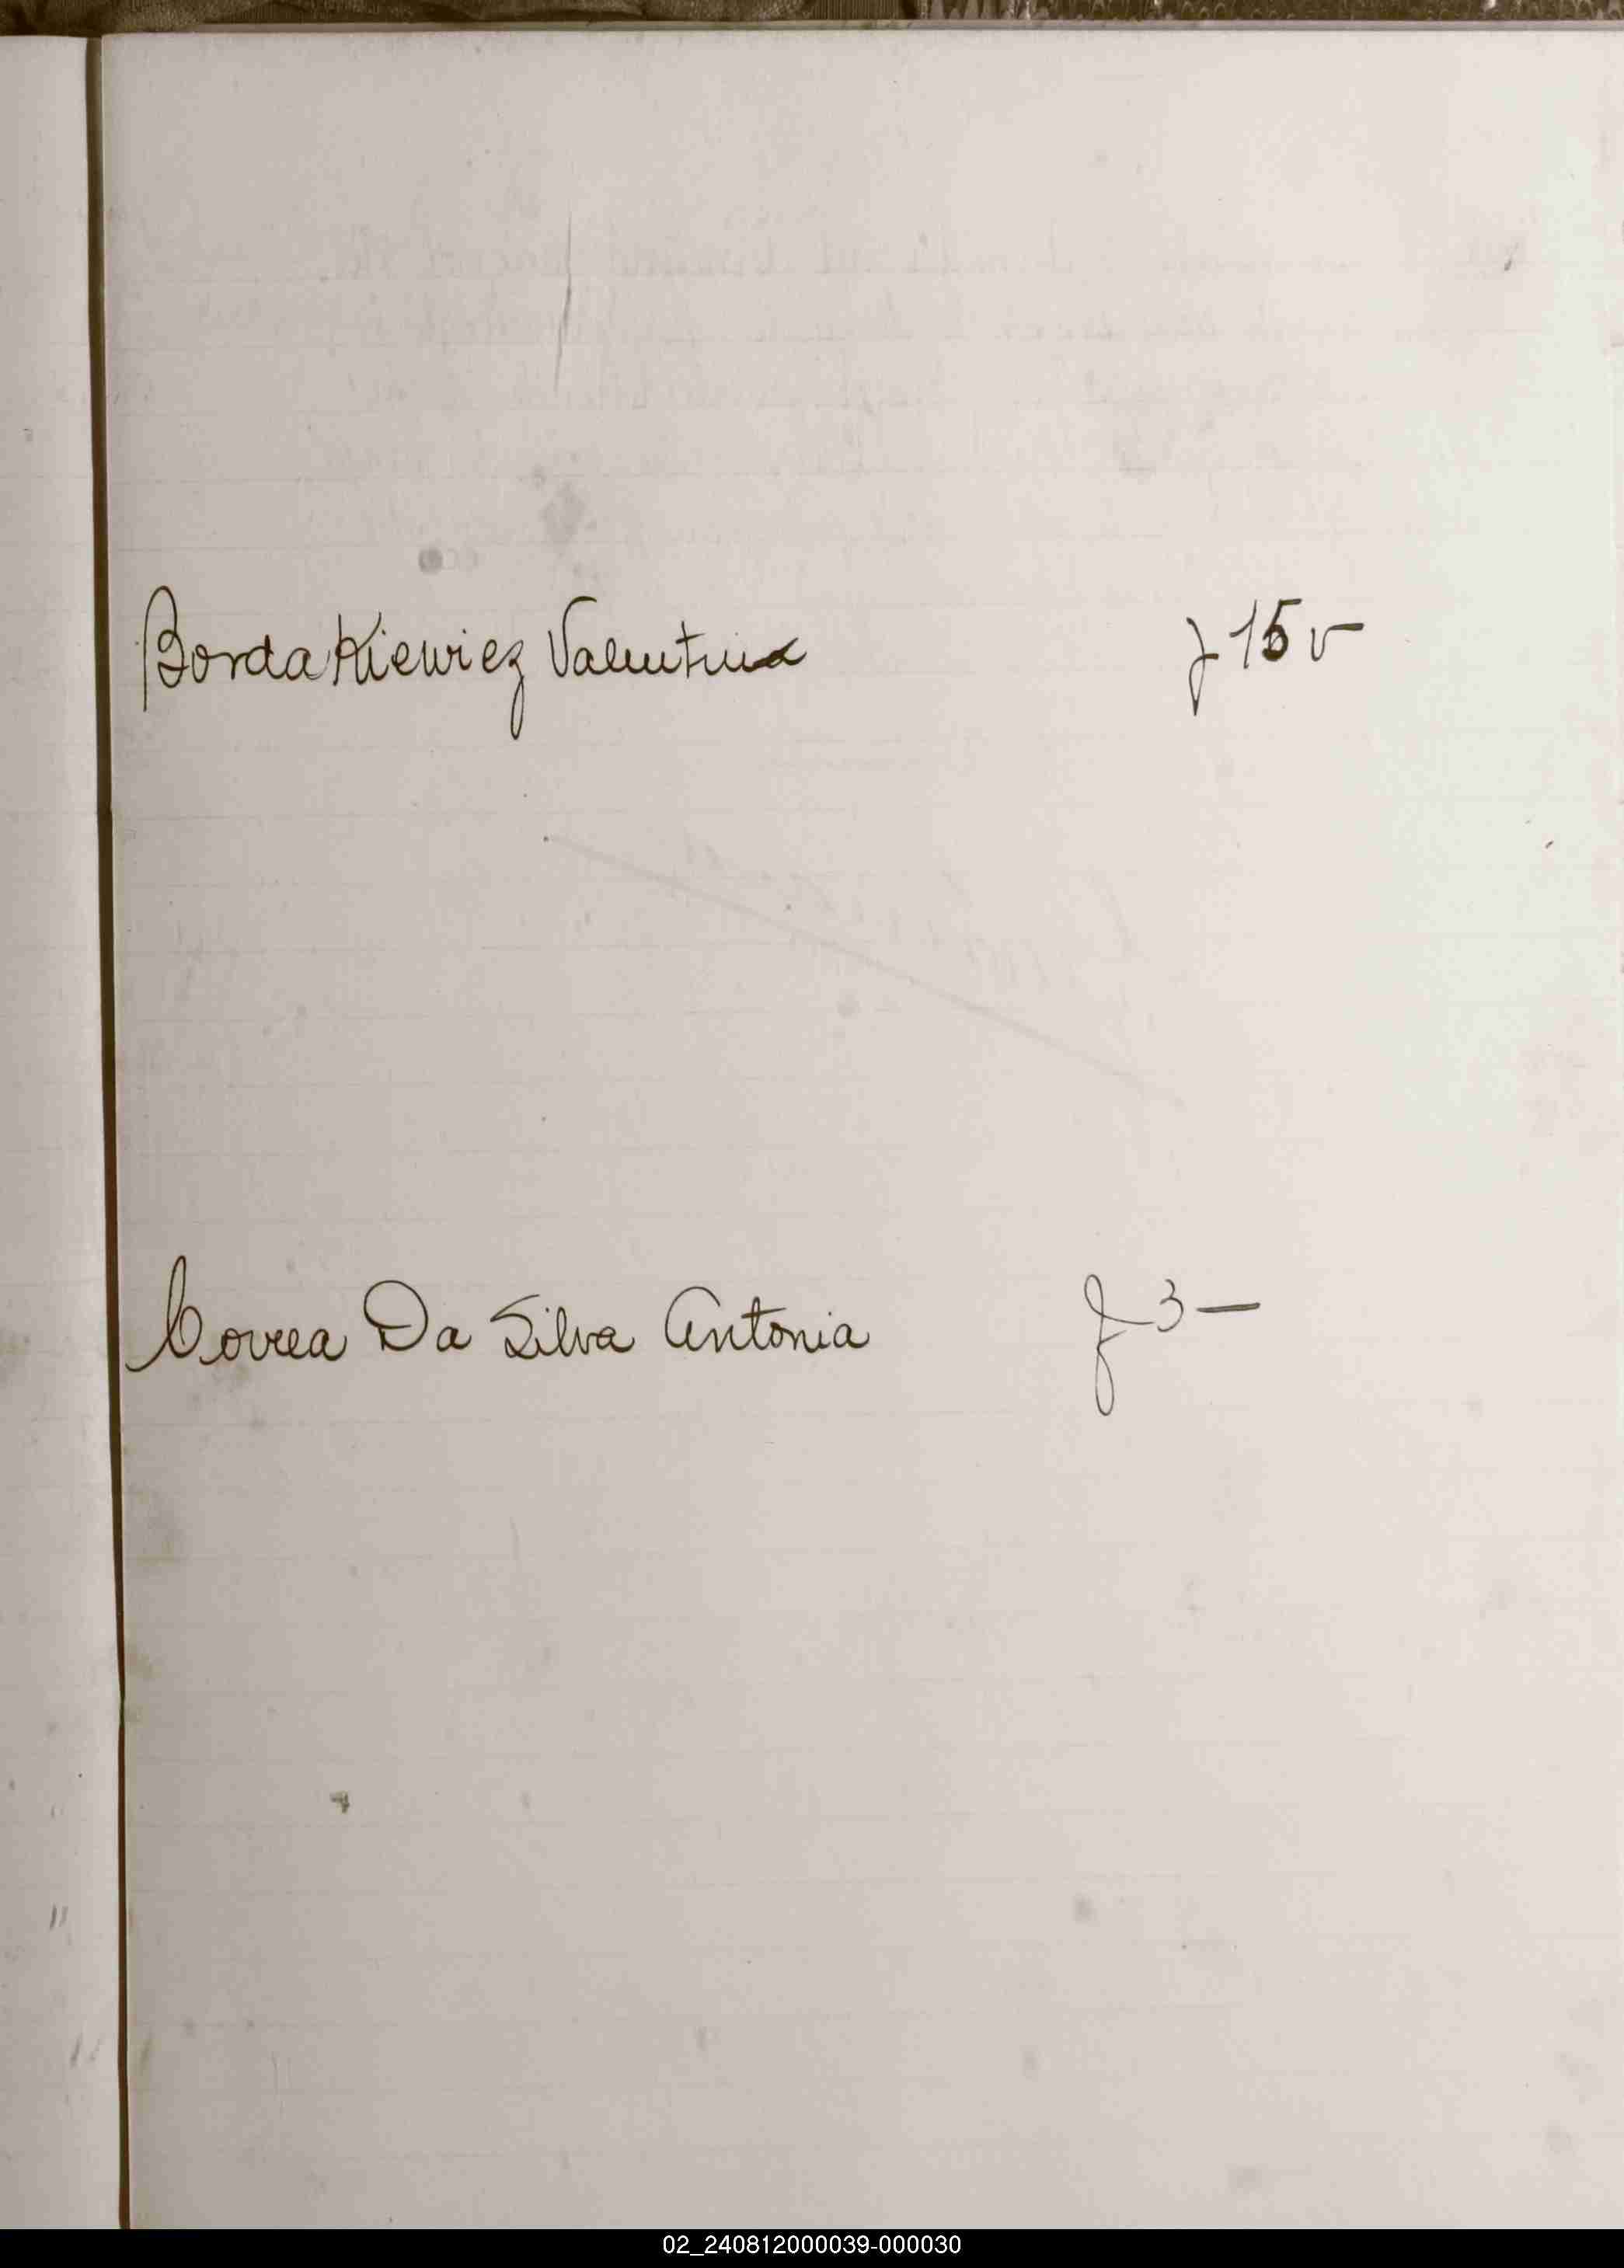 Bordakiewiez Valentina f 15 v
Correa Da Silva Antonia f 3 —
02_240812000039-000030